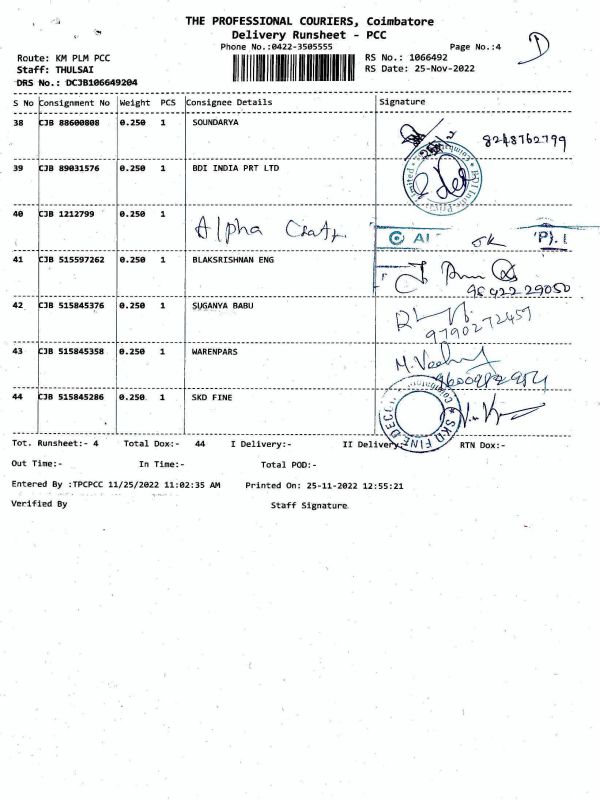 THE PROFESSIONAL COURIERS, Coimbatore
Delivery Runsheet - PCC
Phone No.:0422-3505555 Page No.:4
Route: KM PLM PCC RS No.: 1066492
Staff: THULSAI RS Date: 25-Nov-2022
DRS No.: DCJB106649204
S No Consignment No Weight PCS Consignee Details Signature
38 CJB 88600808 0.250 1 SOUNDARYA 8248762799
39 CJB 89031576 0.250 1 BDI INDIA PRT LTD
40 CJB 1212799 0.250 1 Alpha
41 CJB 515597262 0.250 1 BLAKSRISHNAN ENG
42 CJB 515845376 0.250 1 SUGANYA BABU 9790272457
43 CJB 515845358 0.250 1 WARENPARS
44 CJB 515845286 0.250 1 SKD FINE
Tot. Runsheet:- 4 Total Dox:- 44 I Delivery:- II Delivery:- RTN Dox:-
Out Time:- In Time:- Total POD:-
Entered By :TPCPCC 11/25/2022 11:02:35 AM Printed On: 25-11-2022 12:55:21
Verified By Staff Signature